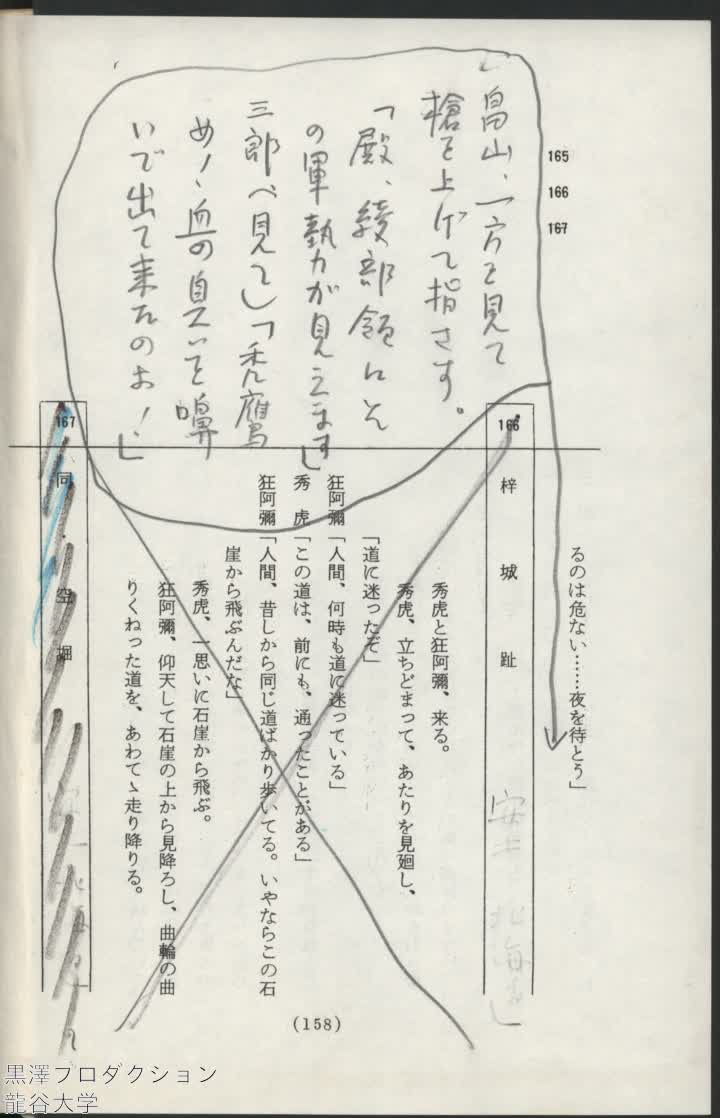 165
166
167
畠山、一方を見て
槍を上げて指さす。
「殿、綾部領にも
の軍勢力が見えます」
三郎（見て）「禿鷹
め！、血の臭いを嗅
いで出て来たのか！」
るのは危ない……夜を待とう」
166
梓城趾
秀虎と狂阿彌、来る。
秀虎、立ちどまって、あたりを見廻し、
「道に迷ったぞ」
狂阿彌「人間、何時も道に迷っている」
秀虎「この道は、前にも、通ったことがある」
狂阿彌「人間、昔しから同じ道ばかり歩いてる。いやならこの石
崖から飛ぶんだな」
秀虎、一思いに石崖から飛ぶ。
狂阿彌、仰天して石崖の上から見降ろし、曲輪の曲
りくねった道を、あわてゝ走り降りる。
167
同・空堀
(158)
黒澤プロダクション
龍谷大学